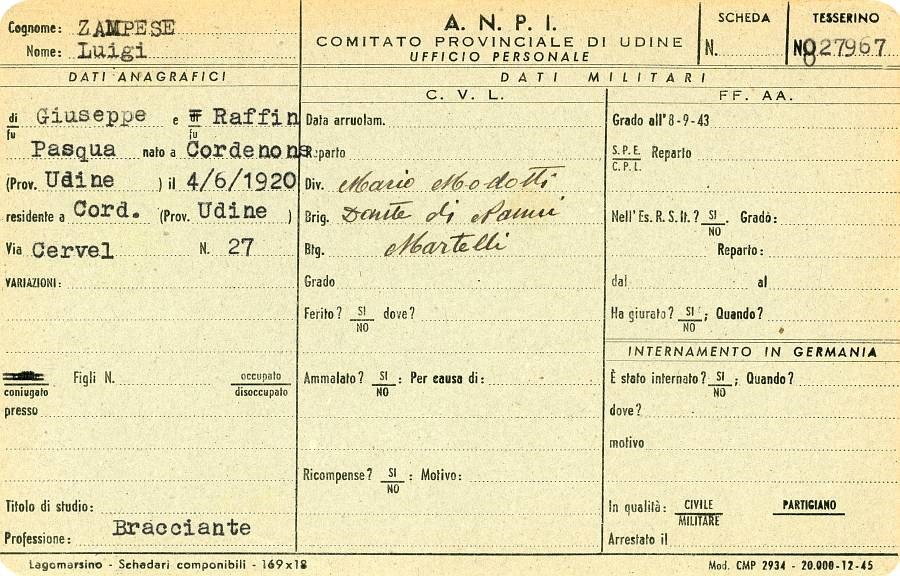 Cognome: ZAMPESE
Nome: Luigi
A. N. P. I.
COMITATO PROVINCIALE DI UDINE
UFFICIO PERSONALE
SCHEDA
N.
TESSERINO
N. 027967
DATI ANAGRAFICI
di fu Giuseppe e fu Raffin
Pasqua nato a Cordenons
(Prov. Udine ) il 4/6/1920
residente a Cord. (Prov. Udine )
Via Cervel N. 27
VARIAZIONI:
coniugato Figli N. occupato disoccupato
presso
Titolo di studio:
Professione: Bracciante
DATI MILITARI
C. V. L.
Data arruolam.
Reparto
Div. Mario Modotti
Brig. Dante di Nanni
Btg. Martelli
Grado
Ferito? SI NO dove?
Ammalato? SI NO : Per causa di:
Ricompense? SI NO : Motivo:
FF. AA.
Grado all'8-9-43
S.P.E. C.P.L. Reparto
Nell'Es. R. S. It.? SI NO . Grado:
Reparto:
dal al
Ha giurato? SI NO ; Quando?
INTERNAMENTO IN GERMANIA
È stato internato? SI NO ; Quando?
dove?
motivo
In qualità: CIVILE MILITARE PARTIGIANO
Arrestato il
Lagomarsino - Schedari componibili - 169x18
Mod. CMP 2934 - 20.000-12-45